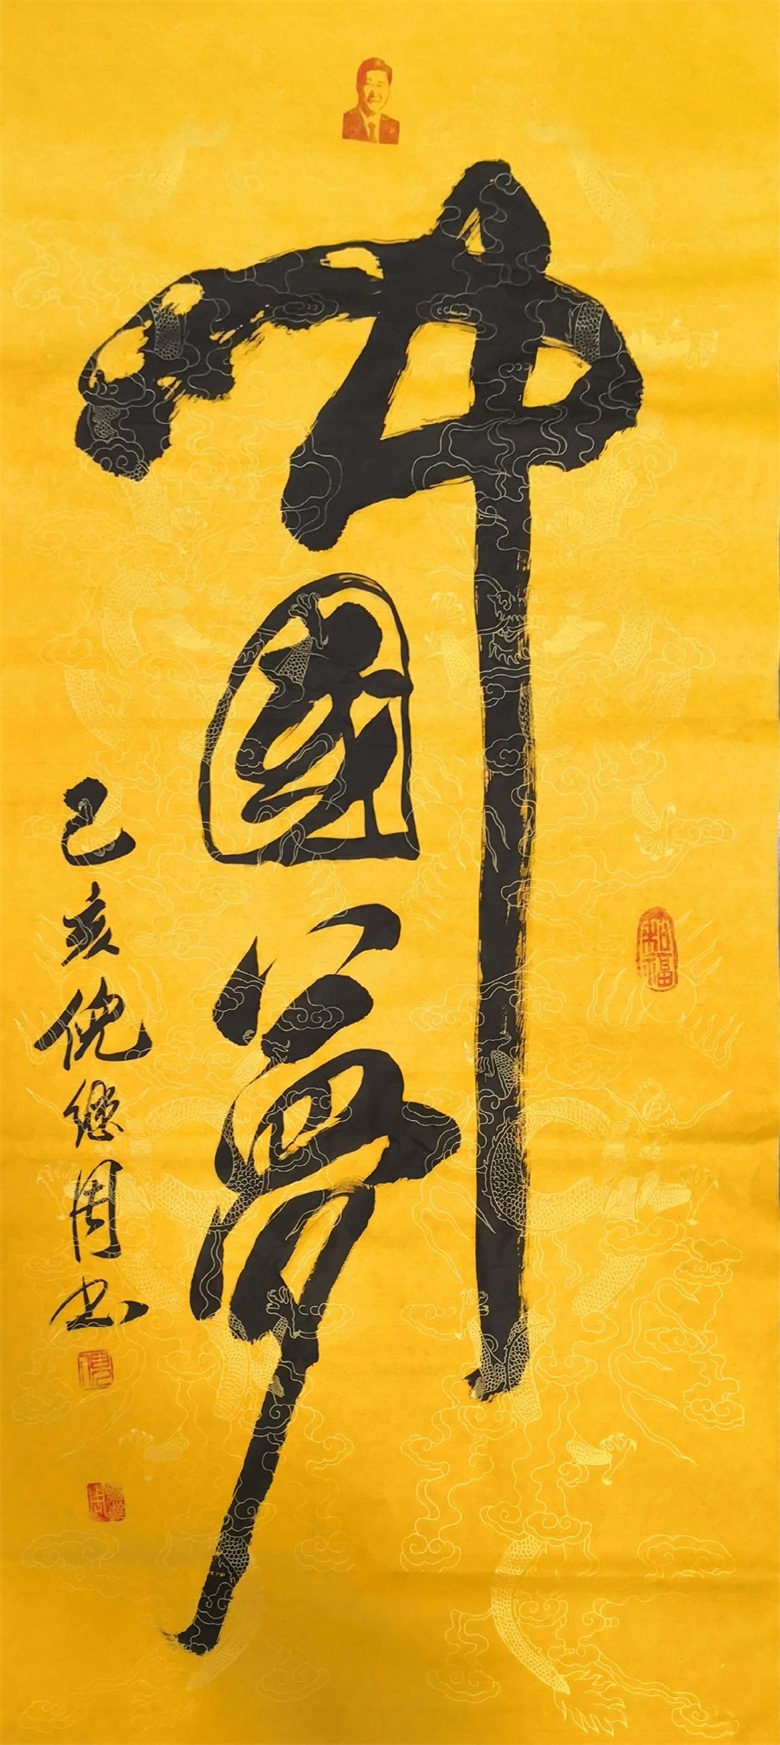 中國夢
己亥倪继周书
和福